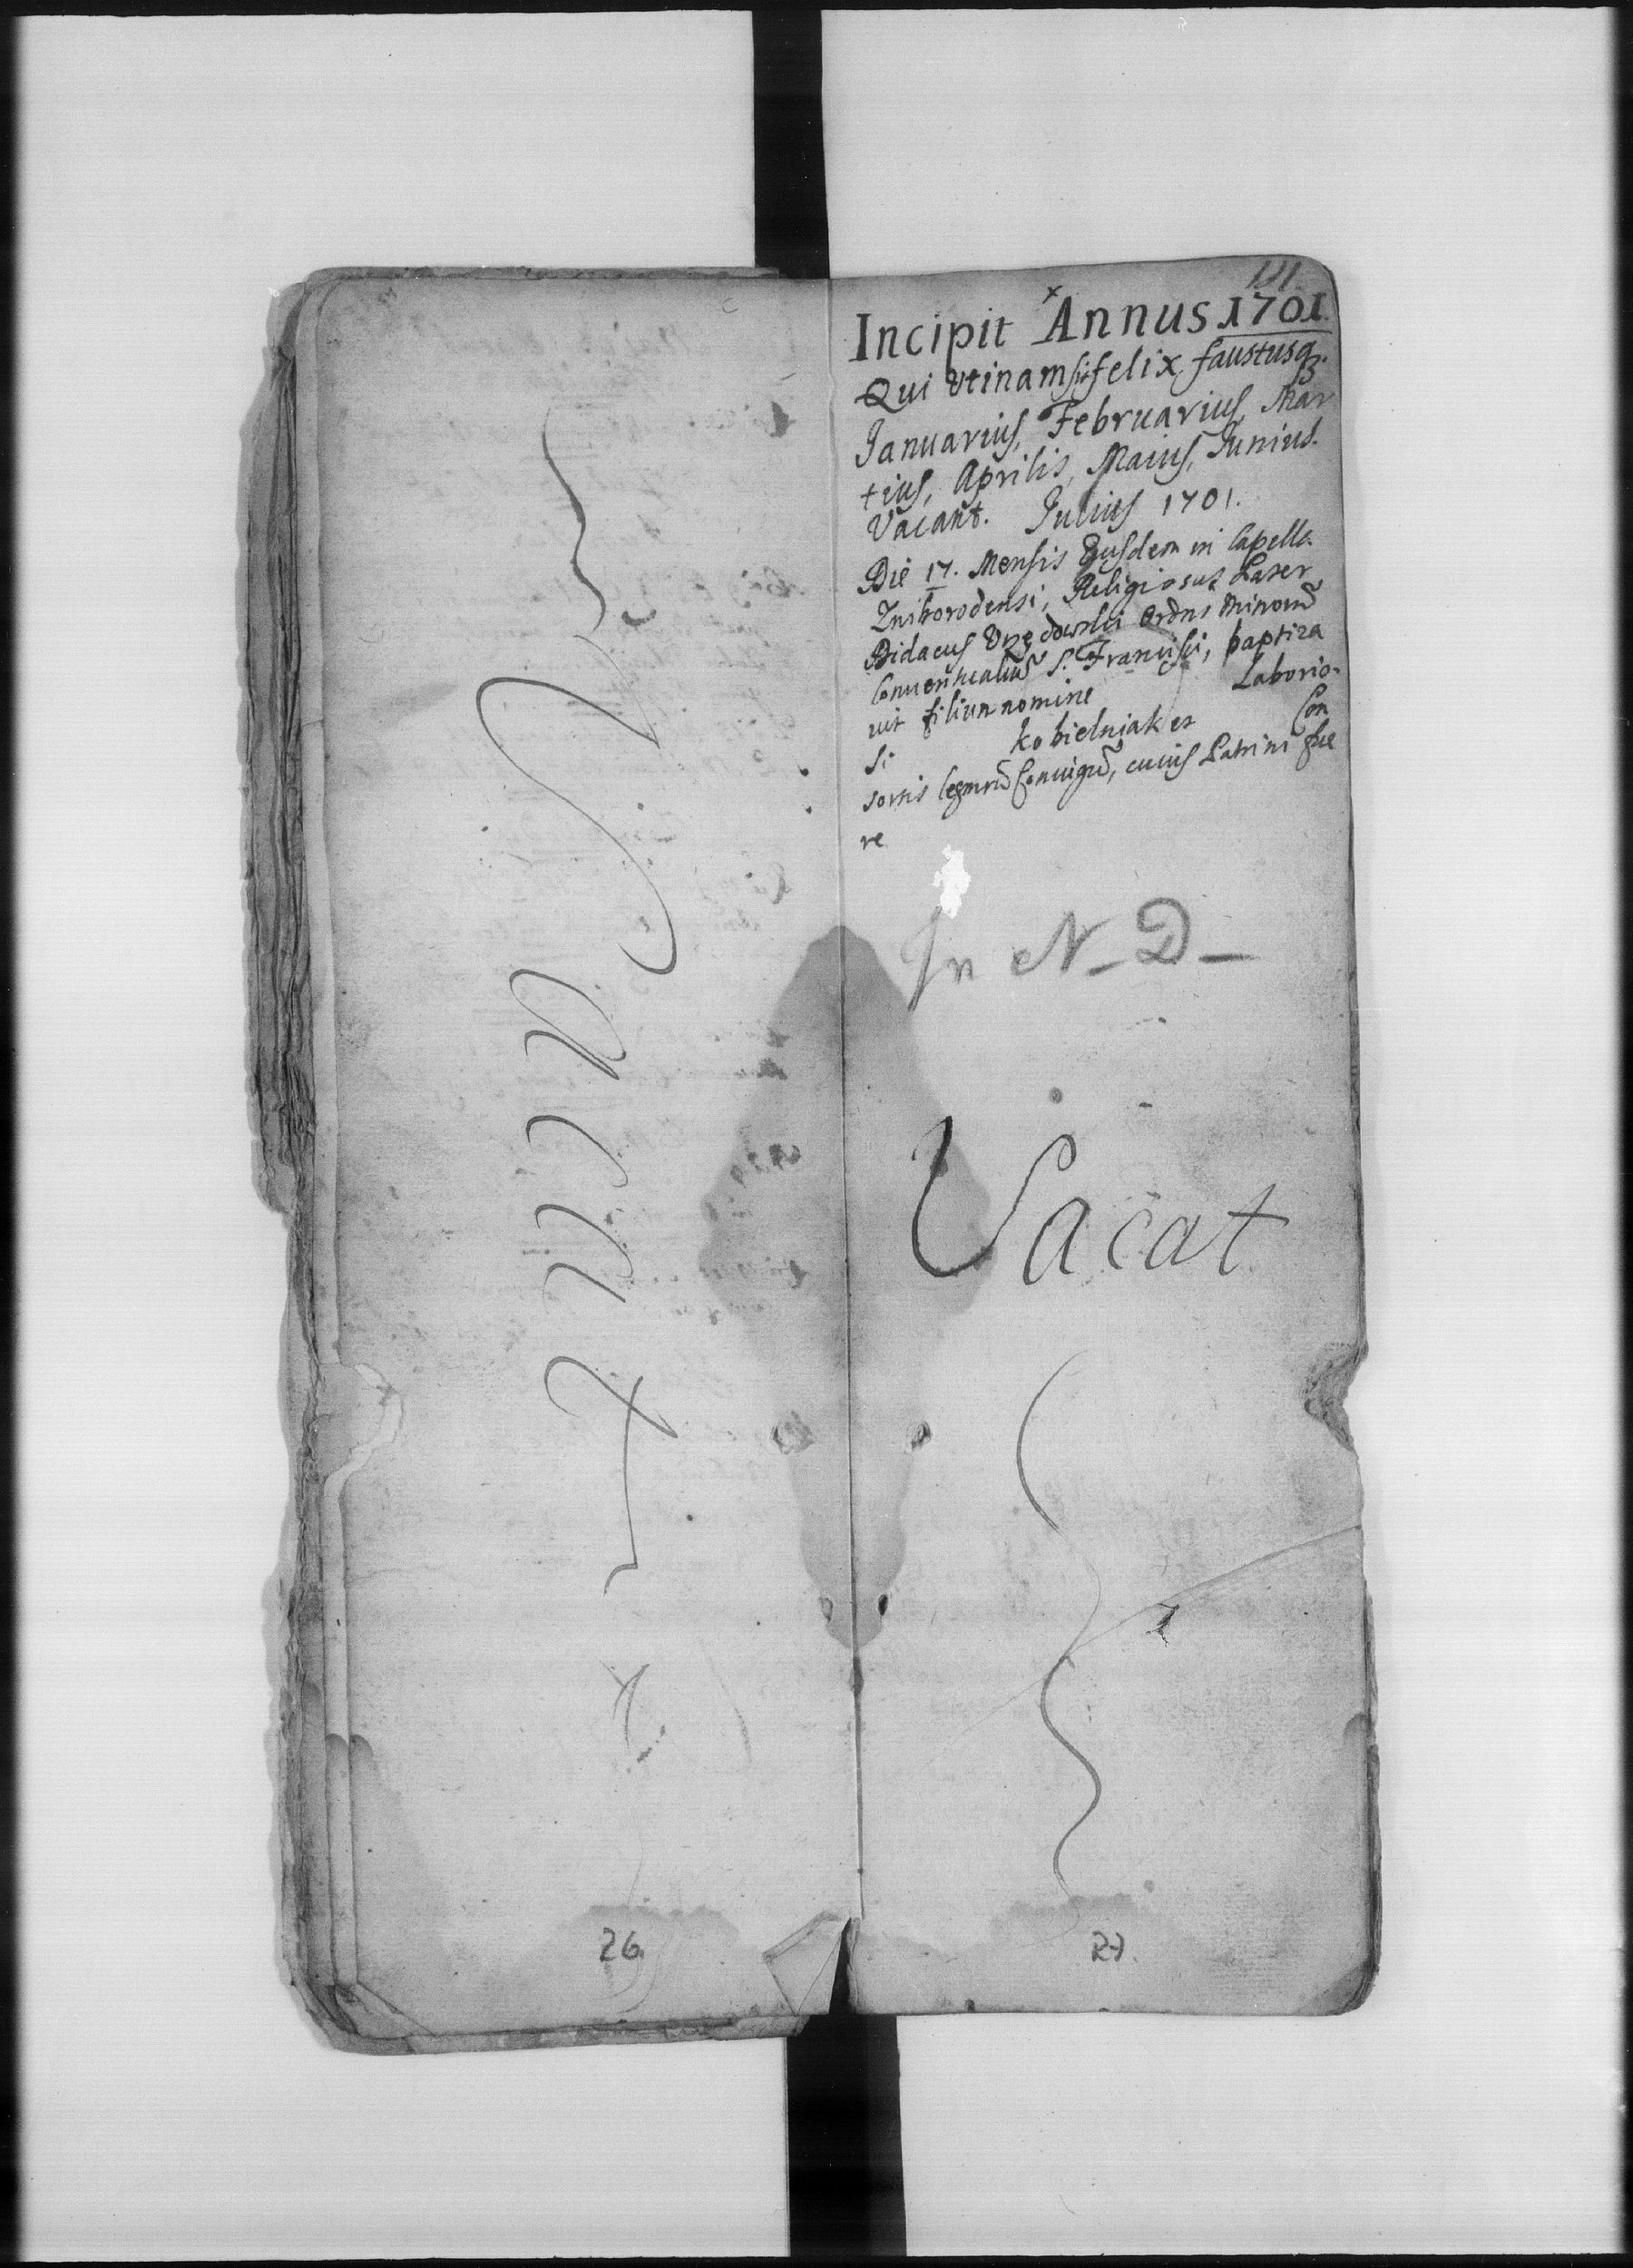 Vacat
26
Incipit Annus 1701.
Qui Vtinam sit felix, faustusq3.
Januarius, Februarius, Mar
tius, Aprilis, Maius, Junius.
Vacant. Julius 1701.
Die 17. Mensis Eiusdem in Capella
Religiosus Pater
Bidacus Ordnis Minorũ
Conventualiũ S. Francisci, baptiza
vit filium nomine Laborio-
si Kobielniak et Con
sortis legmrũ Coniugũ, cuius Patrini fue
re
In N_ D_
Vacat
27.